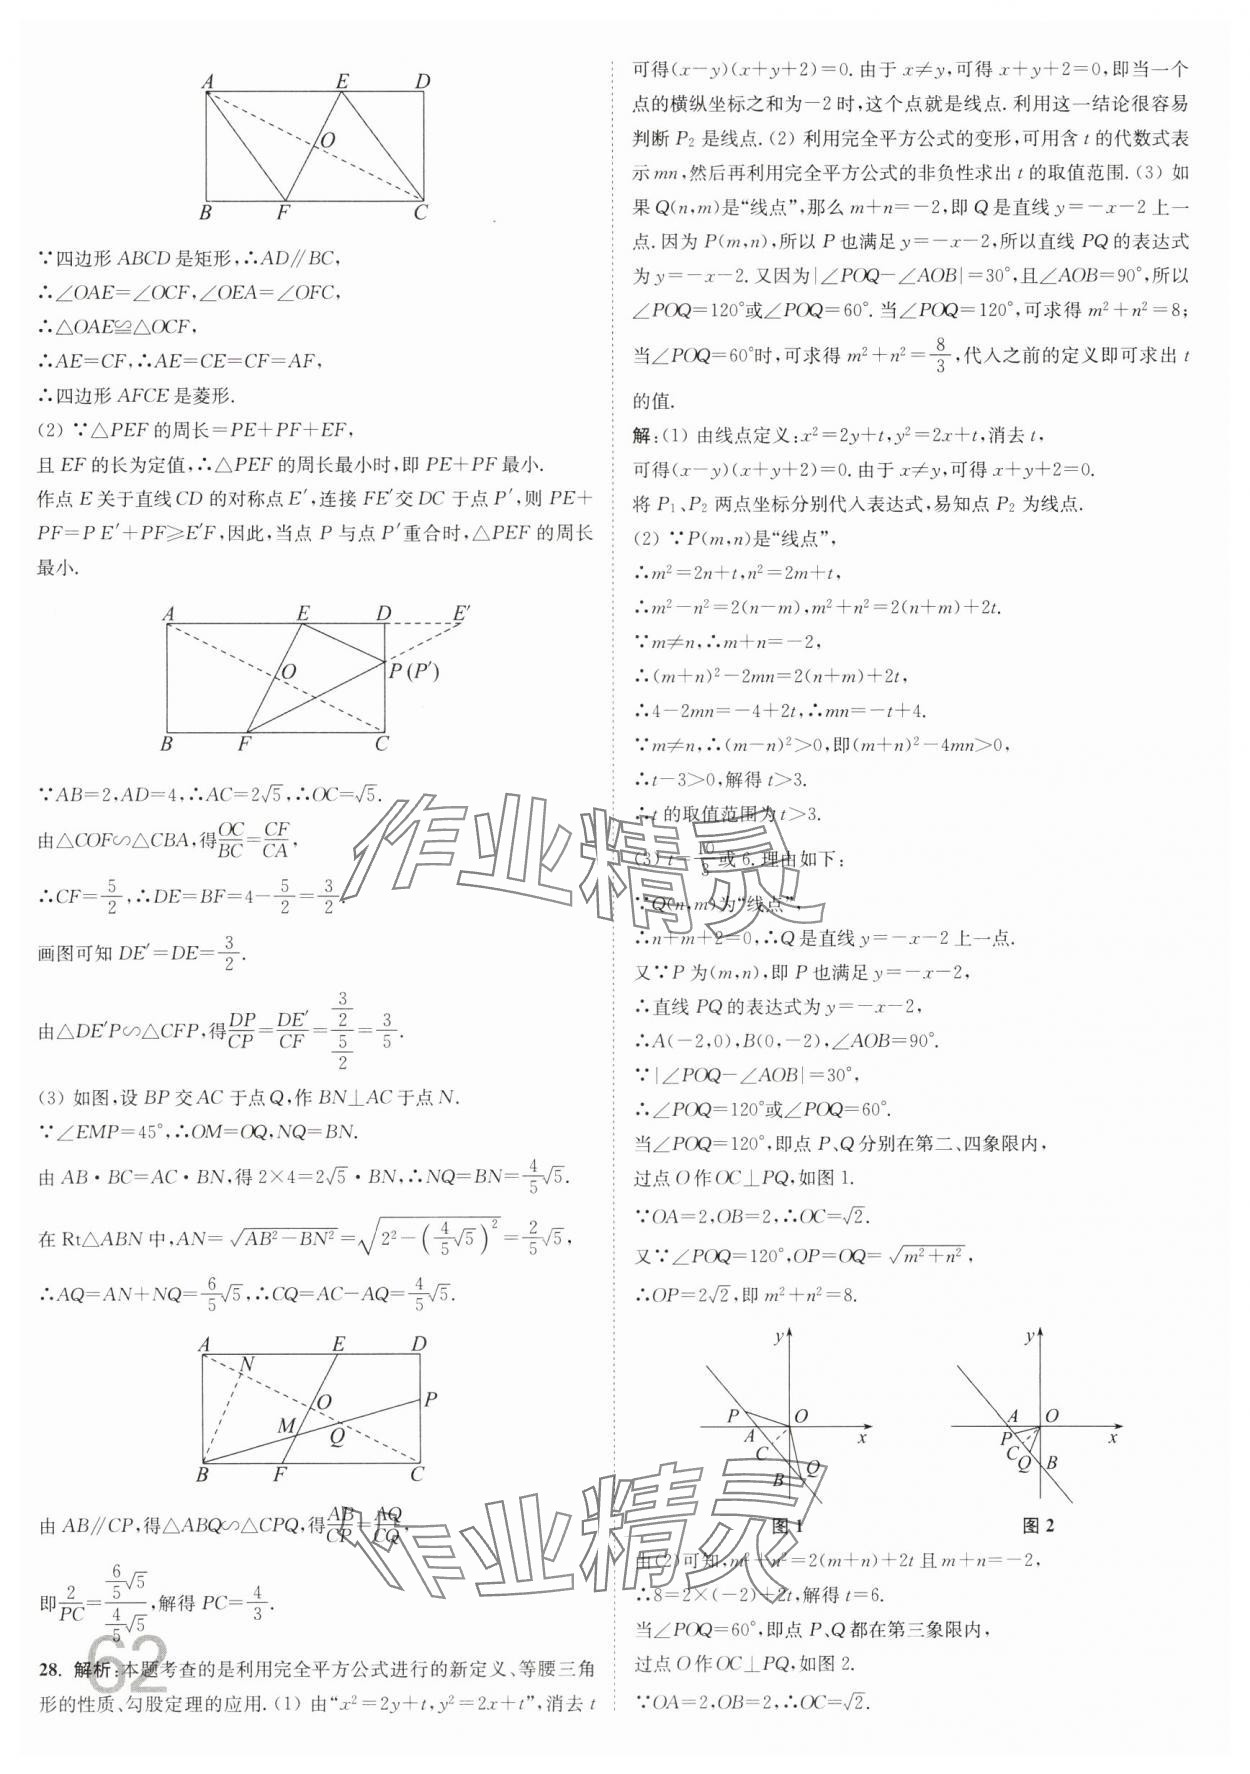 A E D
O
B F C
∵四边形 ABCD 是矩形,∴AD∥BC,
∴∠OAE=∠OCF,∠OEA=∠OFC,
∴△OAE≌△OCF,
∴AE=CF,∴AE=CE=CF=AF,
∴四边形 AFCE 是菱形.
(2) ∵△PEF 的周长=PE+PF+EF,
且 EF 的长为定值,∴△PEF 的周长最小时,即 PE+PF 最小.
作点 E 关于直线 CD 的对称点 E′,连接 FE′交 DC 于点 P′,则 PE+
PF=P E′+PF≥E′F,因此,当点 P 与点 P′重合时,△PEF 的周长
最小.
A E D E′
O P(P′)
B F C
∵AB=2,AD=4,∴AC=2√5,∴OC=√5.
由△COF∽△CBA,得OC/BC=CF/CA,
∴CF=5/2,∴DE=BF=4-5/2=3/2.
画图可知 DE′=DE=3/2.
由△DE′P∽△CFP,得DP/CP=DE′/CF=(3/2)/(5/2)=3/5.
(3) 如图,设 BP 交 AC 于点 Q,作 BN⊥AC 于点 N.
∵∠EMP=45°,∴OM=OQ,NQ=BN.
由 AB·BC=AC·BN,得 2×4=2√5·BN,∴NQ=BN=4/5√5.
在 Rt△ABN 中,AN=√(AB²-BN²)=√(2²-(4/5√5)²)=2/5√5,
∴AQ=AN+NQ=6/5√5,∴CQ=AC-AQ=4/5√5.
A E D
N
O P
M Q
B F C
由 AB∥CP,得△ABQ∽△CPQ,得AB/CP=AQ/CQ,
即2/PC=(6/5√5)/(4/5√5),解得 PC=4/3.
28. 解析:本题考查的是利用完全平方公式进行的新定义、等腰三角
形的性质、勾股定理的应用.(1) 由“x²=2y+t,y²=2x+t”,消去 t
62
可得(x-y)(x+y+2)=0.由于 x≠y,可得 x+y+2=0,即当一个
点的横纵坐标之和为-2时,这个点就是线点.利用这一结论很容易
判断 P₂ 是线点.(2) 利用完全平方公式的变形,可用含 t 的代数式表
示 mn,然后再利用完全平方公式的非负性求出 t 的取值范围.(3) 如
果 Q(n,m)是“线点”,那么 m+n=-2,即 Q 是直线 y=-x-2 上一
点.因为 P(m,n),所以 P 也满足 y=-x-2,所以直线 PQ 的表达式
为 y=-x-2.又因为|∠POQ-∠AOB|=30°,且∠AOB=90°,所以
∠POQ=120°或∠POQ=60°.当∠POQ=120°,可求得 m²+n²=8;
当∠POQ=60°时,可求得 m²+n²=8/3,代入之前的定义即可求出 t
的值.
解:(1) 由线点定义:x²=2y+t,y²=2x+t,消去 t,
可得(x-y)(x+y+2)=0.由于 x≠y,可得 x+y+2=0.
将 P₁、P₂ 两点坐标分别代人表达式,易知点 P₂ 为线点.
(2) ∵P(m,n)是“线点”,
∴m²=2n+t,n²=2m+t,
∴m²-n²=2(n-m),m²+n²=2(n+m)+2t.
∵m≠n,∴m+n=-2,
∴(m+n)²-2mn=2(n+m)+2t,
∴4-2mn=-4+2t,∴mn=-t+4.
∵m≠n,∴(m-n)²>0,即(m+n)²-4mn>0,
∴t-3>0,解得 t>3.
∴t 的取值范围为 t>3.
(3) t=10/3或 6.理由如下:
∵Q(n,m)为“线点”,
∴n+m+2=0,∴Q 是直线 y=-x-2 上一点.
又∵P 为(m,n),即 P 也满足 y=-x-2,
∴直线 PQ 的表达式为 y=-x-2,
∴A(-2,0),B(0,-2),∠AOB=90°.
∵|∠POQ-∠AOB|=30°,
∴∠POQ=120°或∠POQ=60°.
当∠POQ=120°,即点 P、Q 分别在第二、四象限内,
过点 O 作 OC⊥PQ,如图 1.
∵OA=2,OB=2,∴OC=√2.
又∵∠POQ=120°,OP=OQ=√(m²+n²),
∴OP=2√2,即 m²+n²=8.
y
P O
A x
C
B Q
图 1
y
A O
P x
C
Q B
图 2
由(2)可知,m²+n²=2(m+n)+2t 且 m+n=-2,
∴8=2×(-2)+2t,解得 t=6.
当∠POQ=60°,即点 P、Q 都在第三象限内,
过点 O 作 OC⊥PQ,如图 2.
∵OA=2,OB=2,∴OC=√2.
作业精灵
作业精灵